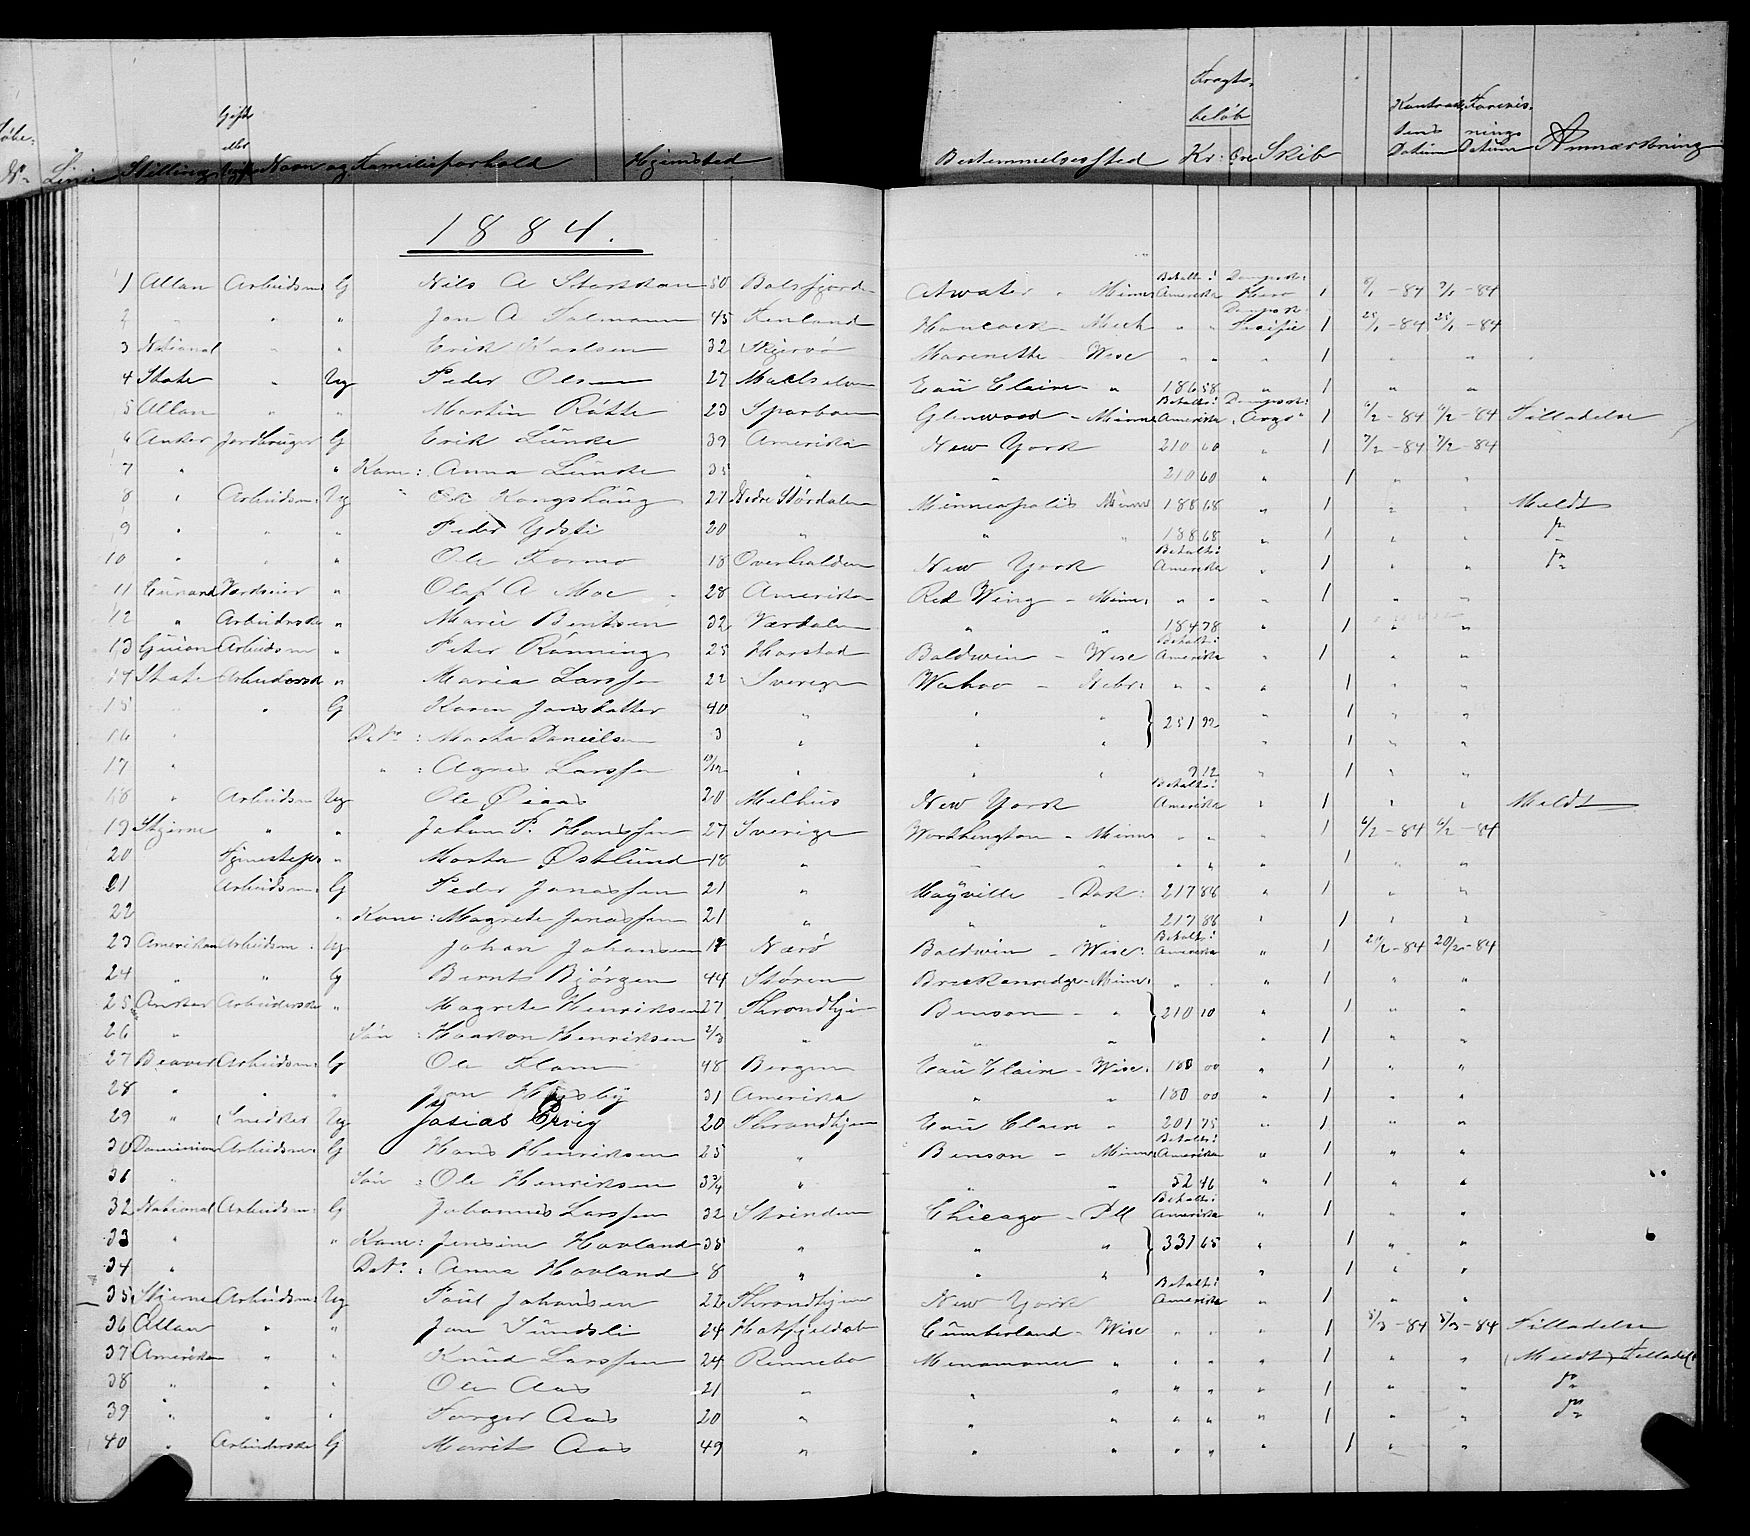 Løbe: Gifte Fragts-
eller beløb Kontrak- Forevis-
tens nings
No Linie Stilling Ugift Navn og Familieforhold Hjemsted Bestemmelsessted Kr: Øre Skib Datum Datum Anmærkning
1884.
1 Allan Arbeidsm G Nils A Storstdan 50 Balsfjorden Atwater Minn Betalt i Amerika Dampsk: Hero 1 8/1 - 84 9/1 - 84
2 " " " Jon A Salmann 45 Finland Hancock - Mich " " Dampsk: Pacific 1 25/1 - 84 25/1 - 84
3 National " " Erik Karlsen 32 Skjervø Marenette - Wisc " " " 1 " "
4 State " Ug Peder Olsen 27 Maalselven Eau Claire " 186 58 " 1 " "
5 Allan " " Martin Røtte 23 Sparboen Glenwood - Minn Betalt i Amerika Dampsk: "Argo" 1 6/2 - 84 6/2 - 84 Tilladelse
6 Anker Jordbruger G Erik Lünke 39 Amerika New York 210 60 " 1 7/2 - 84 7/2 - 84
7 " " Kone: Anna Lünke 35 " " 210 60 " 1 " "
8 " Arbeidsm: Ug " Ole Kongshaug 27 Nedre Størdalen Minneapolis Minn 188 68 " 1 " " Meldt
9 " " " Peder Ydsti 20 " " " 188 68 " 1 " " do
10 " " " Ole Formo 18 Overhalden New York Betalt i Amerika " 1 " " do
11 Cunard Værkeier " Olaf A Moe 28 Amerika Red Wing - Minn: " " " 1 " "
12 " Arbeiderske " Marie Bentsen 32 Værdalen " " 184 78 " 1 " "
13 Guion Arbeidsm " Peter Rønning 25 Harstad Baldwin - Wisc Betalt i Amerika " 1 " "
14 State Arbeidersk " Maria Larssen 22 Sverige Wahoo - Nebr: " " " 1 " "
15 " " G Karen Jonsdatter 40 " " " 251 92 " 1 " "
16 " Datr: Marta Danielsen 3 " " " " 1 " "
17 " " : Agnes Larssen 10/12 " " " 9 12 " 1 " "
18 " Arbeidsm Ug Ole Øiaas 20 Melhus New York Betalt i Amerika " 1 " " Meldt
19 Stjerne " " Johan P. Hanssen 27 Sverige Worthington - Minn " " " 1 6/2 - 84 6/2 - 84
20 Tjenestepi " Marta Østlund 18 " " " " " " 1 " "
21 Arbeidsm: G Peder Jonassen 21 " Mayville - Dak: 217 86 " 1 " "
22 " Kone: Magrete Jonassen 21 " " " 217 86 " 1 " "
23 Amerikan Arbeidsm: Ug Johan Johansen 19 Nærø Baldwin - Wisc: Betalt i Amerika " 1 20/2 - 84 20/2 - 84
24 " " G Bernt Bjørgen 44 Støren Breckenredge - Minn: " " " 1 " "
25 Anker Arbeiderske " Magrete Henriksen 27 Throndhjem Benson - " 210 10 " 1 " "
26 " Søn: Haakon Henriksen 2/3 " " " " 1 " "
27 Beaver Arbeidsm: G Ole Flam 48 Bergen Eau Claire - Wisc: 180 00 " 1 " "
28 " " " Jon Husby 31 Amerika " " 180 00 " 1 " "
29 " Snedker Ug Josias 20 Throndhjem Eau Claire " 201 75 " 1 " "
30 Dominion Arbeidsm: G Hans Henriksen 25 " Benson - Minn: Betalt i Amerika " 1 " "
31 " Søn: Ole Henriksen 3 3/4 " " " 52 46 " 1 " "
32 National Arbeidsm: G Johannes Larssen 32 Strinden Chicago - Ill Betalt i Amerika " 1 " "
33 " " Kone: Jensine Hovland 38 " " " 331 65 " 1 " "
34 " Datr: Anna Hovland 8 " " " " 1 " "
35 Stjerne Arbeidsm: Ug Paul Johansen 22 Throndhjem New York Betalt i Amerika " 1 " "
36 Allan " " Jon Sündsli 24 Hatfjeldal Cumberland - Wisc " " " 1 5/3 - 84 5/3 - 84 Tilladelse
37 Amerika " " Knud Larssen 24 Rennebo Menomonee " " " " 1 " " (Meldt) Tilladel:
38 " " " Ole Aas 21 " " " " " " 1 " " do
39 " " " Torger Aas 20 " " " " " " 1 " " do
40 " Arbeiderske G Marit Aas 49 " " " " " " 1 " "